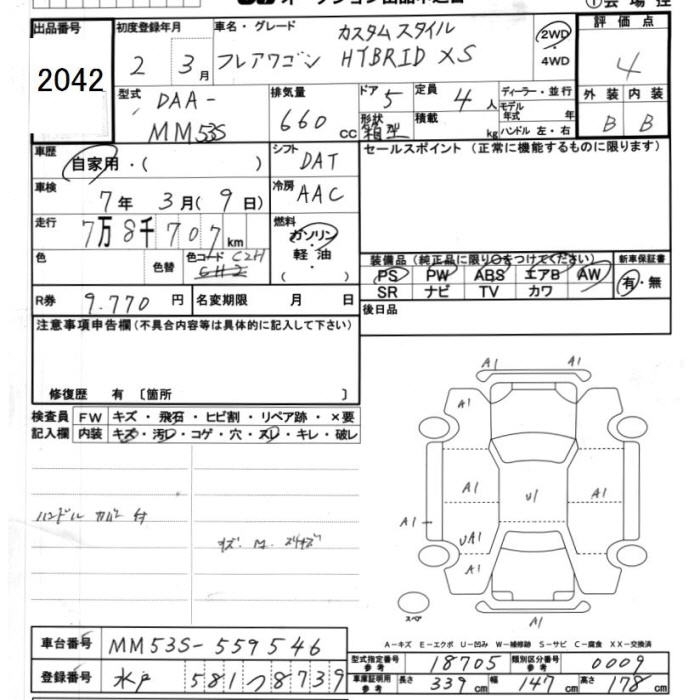 出品番号 初度登録年月 車名・グレード 評価点
2042 2 3月 フレアワゴン カスタムスタイル HYBRID XS 2WD・4WD 4
型式 DAA-MM53S 排気量 660cc ドア 5 形状 箱型 定員 4人 積載 kg ディーラー・並行 モデル年式 年 ハンドル 左・右 外装 B 内装 B
車歴 自家用・( ) シフト DAT セールスポイント(正常に機能するものに限ります)
車検 7年 3月(9日) 冷房 AAC
走行 7万8千707km 燃料 ガソリン 軽油 ( )
色 色替 色コード C2H
装備品(純正品に限り○をつけてください) 新車保証書
PS PW ABS エアB AW 有・無
SR ナビ TV カワ
R券 9.770円 名変期限 月 日 後日品
注意事項申告欄(不具合内容等は具体的に記入して下さい)
修復歴 有 〔箇所 〕
検査員 FW キズ・飛石・ヒビ割・リペア跡・×要
記入欄 内装 キズ・汚レ・コゲ・穴・スレ・キレ・破レ
A1 A1
A1
A1 U1 A1
A1
UA1
A1
A1
スペア
ハンドル カバー 付
A-キズ E-エクボ U-凹み W-補修跡 S-サビ C-腐食 XX-交換済
車台番号 MM53S-559546 型式指定番号 参考 18705 類別区分番号 参考 0009
登録番号 水戸 581つ8739 車庫証明用 参考 長さ 339cm 幅 147cm 高さ 178cm